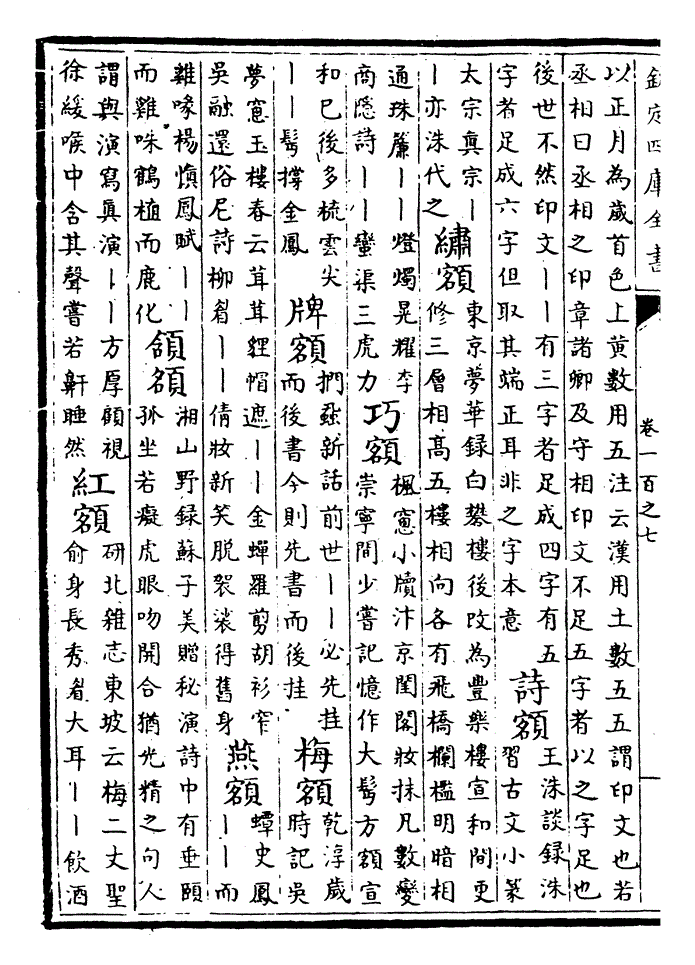 欽定四庫全書
卷一百之七
以正月為歲首色上黄數用五注云漢用土數五五謂印文也若
丞相曰丞相之印章諸卿及守相印文不足五字者以之字足也
後世不然印文丨丨有三字者足成四字有五
字者足成六字但取其端正耳非之字本意
詩額
王洙談録洙
習古文小篆
太宗真宗丨
丨亦洙代之
繡額
東京夢華録白礬樓後改為豐樂樓宣和間更
修三層相高五樓相向各有飛橋欄檻明暗相
通珠簾丨丨燈燭晃耀李
商隠詩丨丨蠻渠三虎力
巧額
楓窓小牘汴京閨閣妝抹凡數變
崇寧間少嘗記憶作大髩方額宣
和已後多梳雲尖
丨丨髩撑金鳳
牌額
捫蝨新話前世丨丨必先挂
而後書今則先書而後挂
梅額
乾淳歲
時記吳
夢窓玉樓春云茸茸貍帽遮丨丨金蟬羅剪胡衫窄
吳融還俗尼詩柳眉丨丨倩妝新笑脱袈裟得舊身
燕額
蟫史鳳
丨丨而
雞喙楊慎鳳賦丨丨
而雞咮鶴植而鹿化
頷額
湘山野録蘇子美贈秘演詩中有垂頤
孤坐若癡虎眼吻開合猶光精之句人
謂與演寫真演丨丨方厚顧視
徐緩喉中含其聲嘗若鼾睡然
紅額
研北雜志東坡云梅二丈聖
俞身長秀眉大耳丨丨飲酒